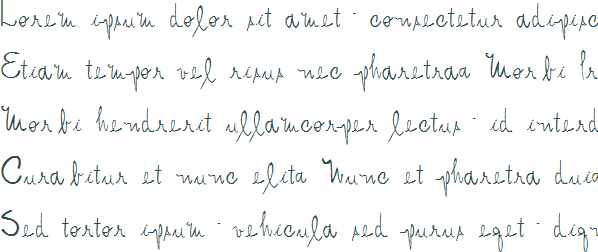 Lorem ipsum dolor sit amet - consectetur adipisc
Etiam tempor vel risus nec pharetraa Morbi
Morbi hendrerit ullamcorper lectus - id interd
Curabitur et nunc elita Nunc et pharetra duia
Sed tortor ipsum - vehicula sed purus eget - dign